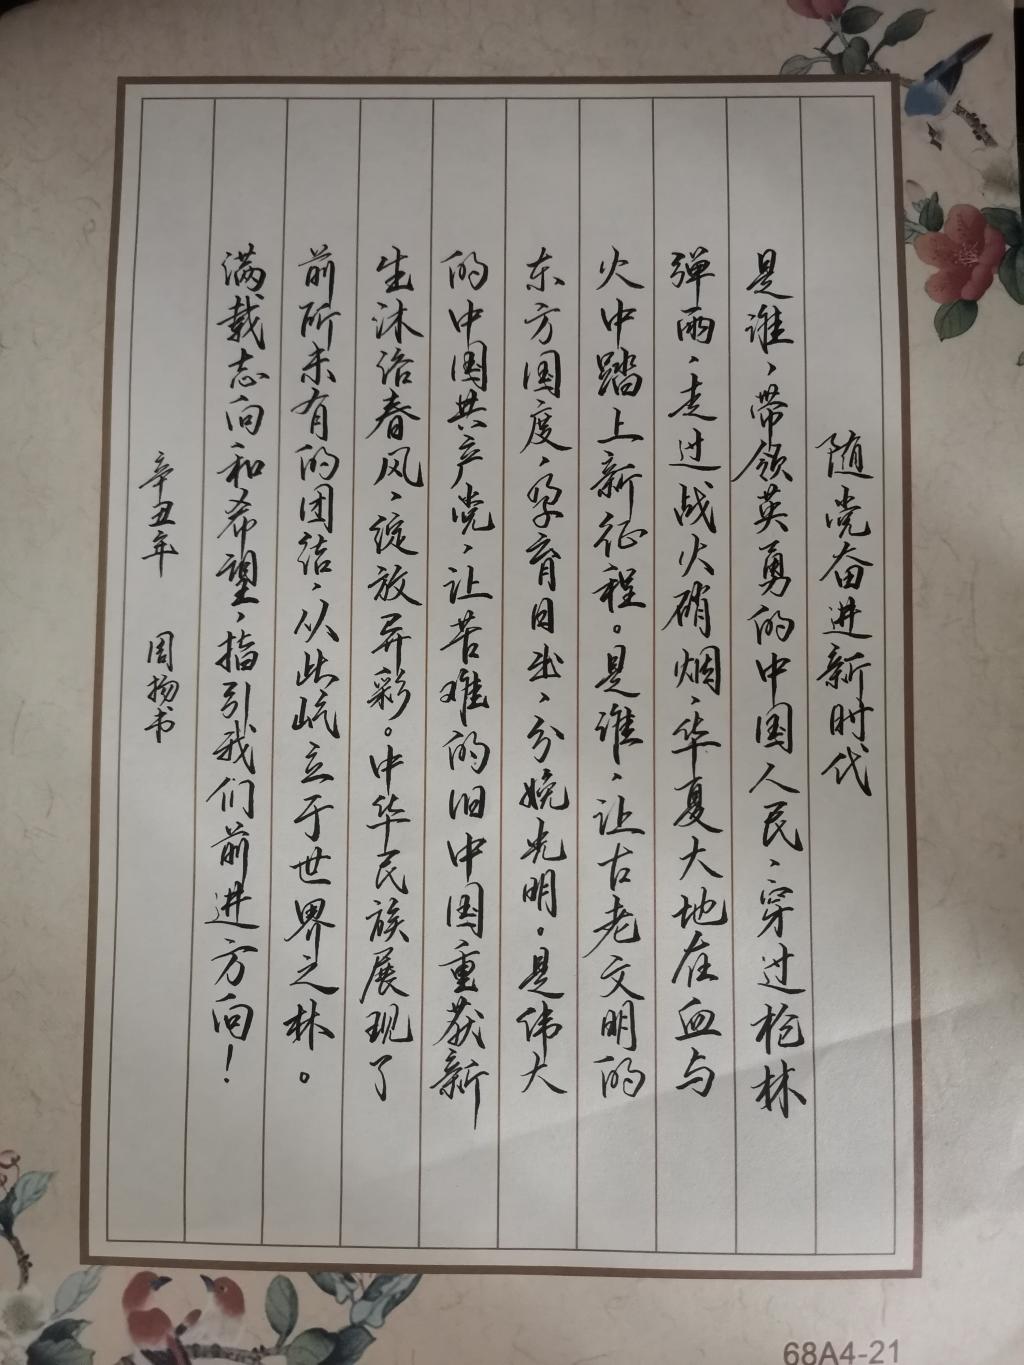 随党奋进新时代
是谁、带领英勇的中国人民、穿过枪林
弹雨、走过战火硝烟、华夏大地在血与
火中踏上新征程。是谁、让古老文明的
东方国度、孕育日出、分娩光明。是伟大
的中国共产党、让苦难的旧中国重获新
生沐浴春风、绽放异彩。中华民族展现了
前所未有的团结、从此屹立于世界之林。
满载志向和希望、指引我们前进方向！
辛丑年 周扬书
68A4-21